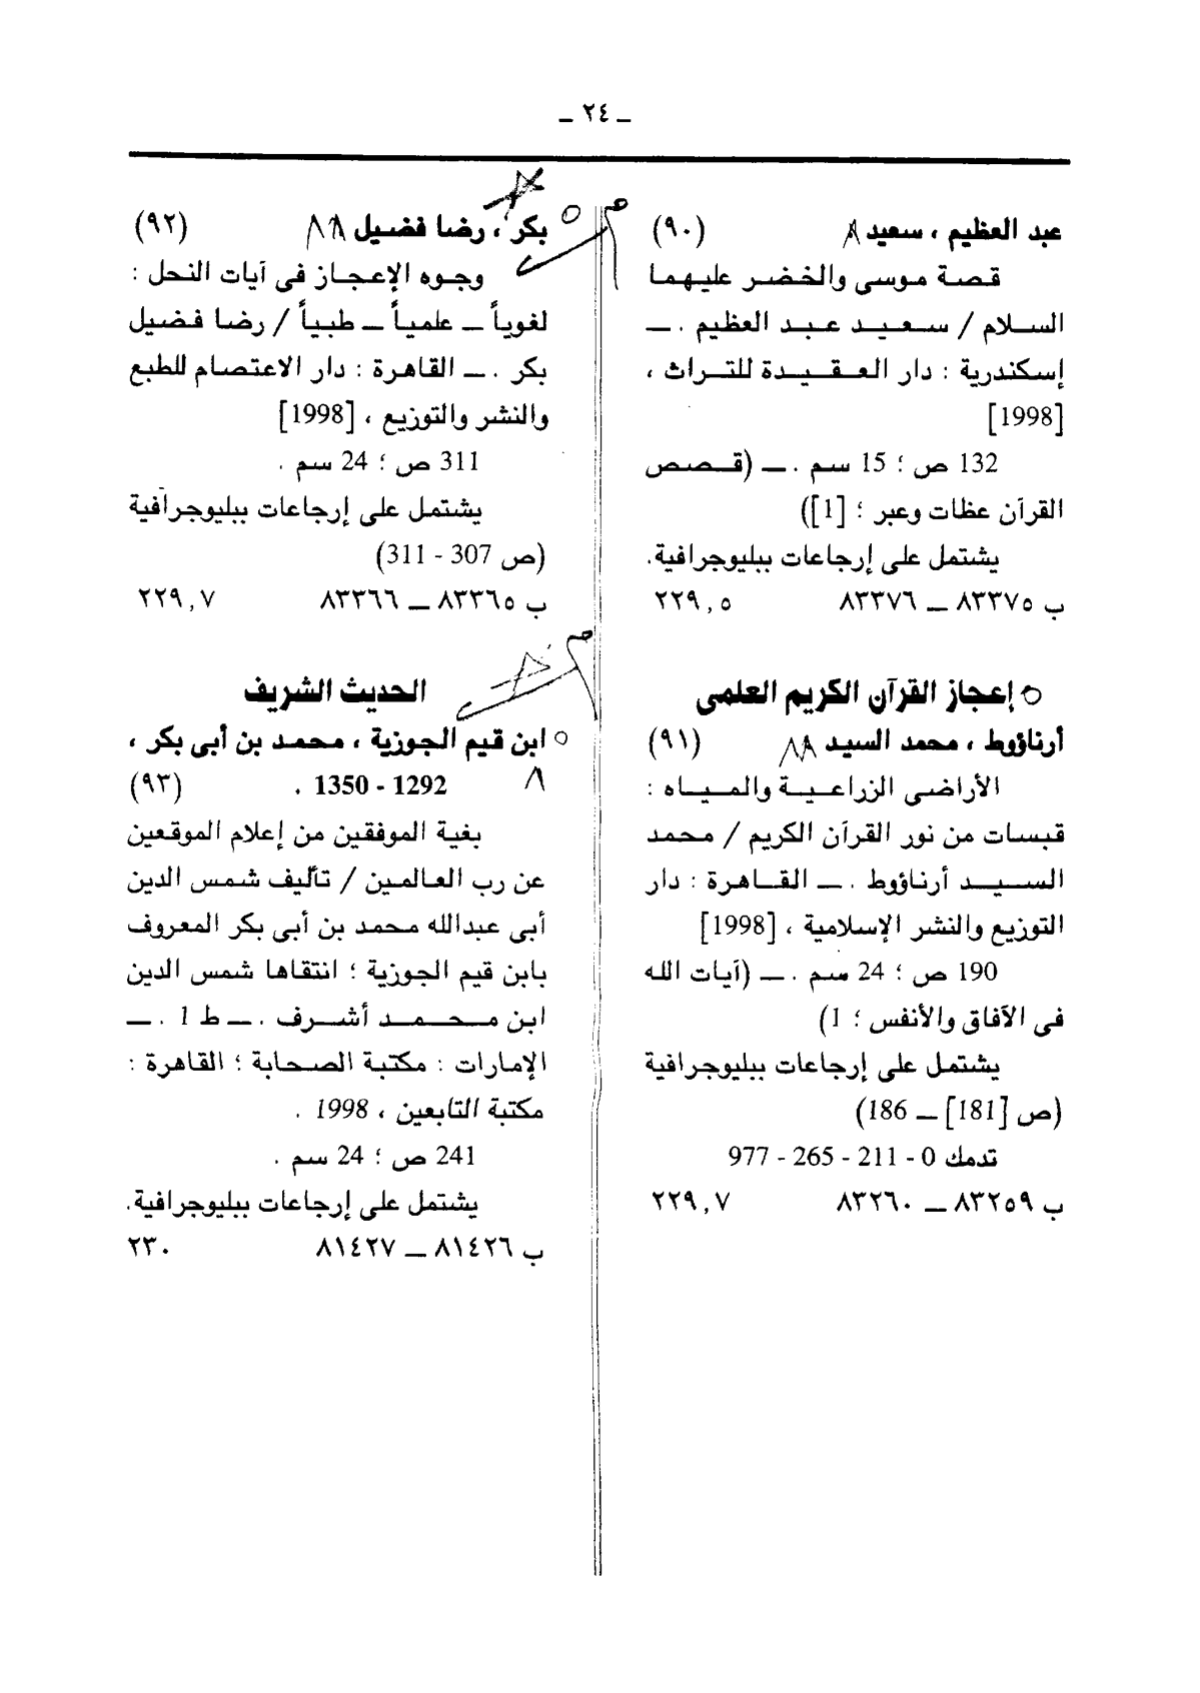 ـ ٢٤ ـ
عبد العظيم ، سعيد (٩٠)
قصة موسى والخضر عليهما
السلام / سعيد عبد العظيم . ـ
إسكندرية : دار العقيدة للتراث ،
[1998]
132 ص ؛ 15 سم . ـ (قصص
القرآن عظات وعبر ؛ [1])
يشتمل على إرجاعات ببليوجرافية.
ب ٨٣٣٧٥ ـ ٨٣٣٧٦ ٢٢٩,٥
إعجاز القرآن الكريم العلمى
أرناؤوط ، محمد السيد (٩١)
الأراضى الزراعية والمياه :
قبسات من نور القرآن الكريم / محمد
السيد أرناؤوط . ـ القاهرة : دار
التوزيع والنشر الإسلامية ، [1998]
190 ص ؛ 24 سم . ـ (آيات الله
فى الآفاق والأنفس ؛ 1)
يشتمل على إرجاعات ببليوجرافية
(ص [181] ـ 186)
تدمك 0 - 211 - 265 - 977
ب ٨٣٢٥٩ ـ ٨٣٢٦٠ ٢٢٩,٧
بكر ، رضا فضيل (٩٢)
وجوه الإعجاز فى آيات النحل :
لغوياً ـ علمياً ـ طبياً / رضا فضيل
بكر . ـ القاهرة : دار الاعتصام للطبع
والنشر والتوزيع ، [1998]
311 ص ؛ 24 سم .
يشتمل على إرجاعات ببليوجرافية
(ص 307 - 311)
ب ٨٣٣٦٥ ـ ٨٣٣٦٦ ٢٢٩,٧
الحديث الشريف
ابن قيم الجوزية ، محمد بن أبى بكر ،
1292 - 1350 . (٩٣)
بغية الموفقين من إعلام الموقعين
عن رب العالمين / تأليف شمس الدين
أبى عبدالله محمد بن أبى بكر المعروف
بابن قيم الجوزية ؛ انتقاها شمس الدين
ابن محمد أشرف . ـ ط 1 . ـ
الإمارات : مكتبة الصحابة ؛ القاهرة :
مكتبة التابعين ، 1998 .
241 ص ؛ 24 سم .
يشتمل على إرجاعات ببليوجرافية.
ب ٨١٤٢٦ ـ ٨١٤٢٧ ٢٣٠